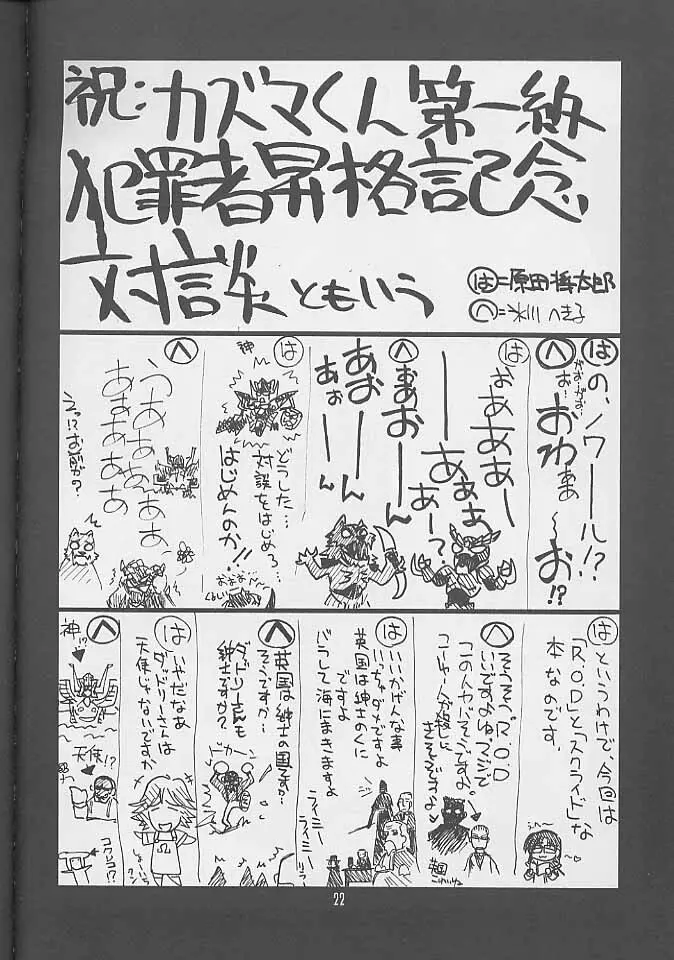 祝:カズマくん第一級
犯罪者昇格記念
対談ともいう
は=原田将太郎
へ=氷川へきる
は
の、ノワール!?
へ
がお…がお…
お…
おわぁあ〜お!?
は
おあああー
ーあぁぁ
あー?
へ
おああおーーん
あおーーん
あぉーーん
は
神
どうした…
対談をはじめろ…
はじめんのか!!
おおお…
へ
うあああああ
あぁああああ
えっ!?お前が?
は
というわけで、今回は
「R.O.D」と「スクライド」な
本なのです。
へ
そうそう。「R.O.D」
いいですよね。マジで
この人ヤバそうですよ。
こいつ一人が殺し
は
いいかげんな事
いっちゃダメですよ
英国は紳士のくに
ですよ
バラして海にまきますよ
へ
英国は紳士の国ですか…
そうですか…
ダッドリーさんも
紳士ですか?
ドカーン
は
いやだなあ
ダッドリーさんは
天使じゃないですか
へ
神!?
天使!?
コワレコ!?
22